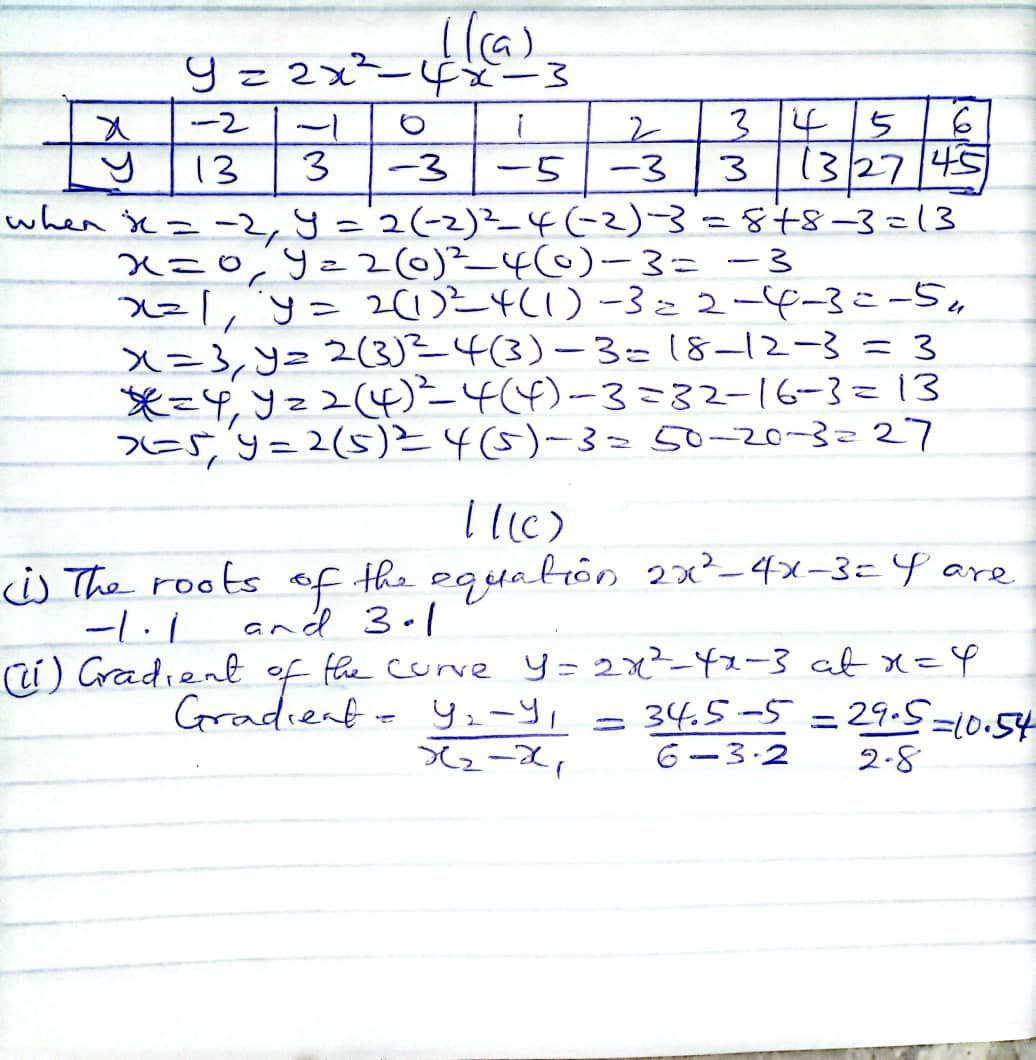 11(a)
y = 2x²-4x-3
x -2 -1 0 1 2 3 4 5 6
y 13 3 -3 -5 -3 3 13 27 45
when x = -2, y = 2(-2)²-4(-2)-3 = 8+8-3=13
x=0, y=2(0)²-4(0)-3= -3
x=1, y= 2(1)²-4(1)-3= 2-4-3=-5,,
x=3, y= 2(3)²-4(3)-3= 18-12-3 = 3
x=4, y=2(4)²-4(4)-3=32-16-3= 13
x=5, y=2(5)²-4(5)-3= 50-20-3= 27
11(c)
(i) The roots of the equation 2x²-4x-3=4 are
-1.1 and 3.1
(ii) Gradient of the curve y=2x²-4x-3 at x=4
Gradient = y₂-y₁/x₂-x₁ = 34.5-5/6-3.2 = 29.5/2.8 =10.54